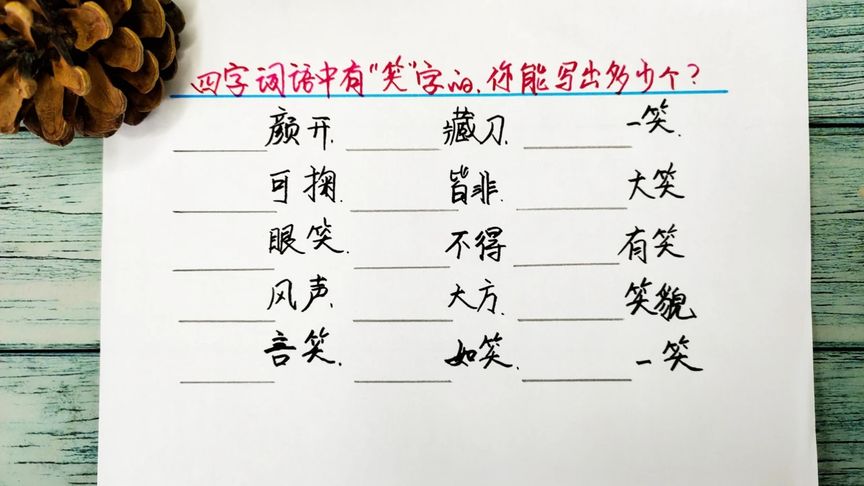 四字词语中有“笑”字的，你能写出多少个？
颜开. 藏刀. 一笑.
可掬. 皆非. 大笑
眼笑. 不得 有笑
风声. 大方. 笑貌
言笑. 如笑. 一笑